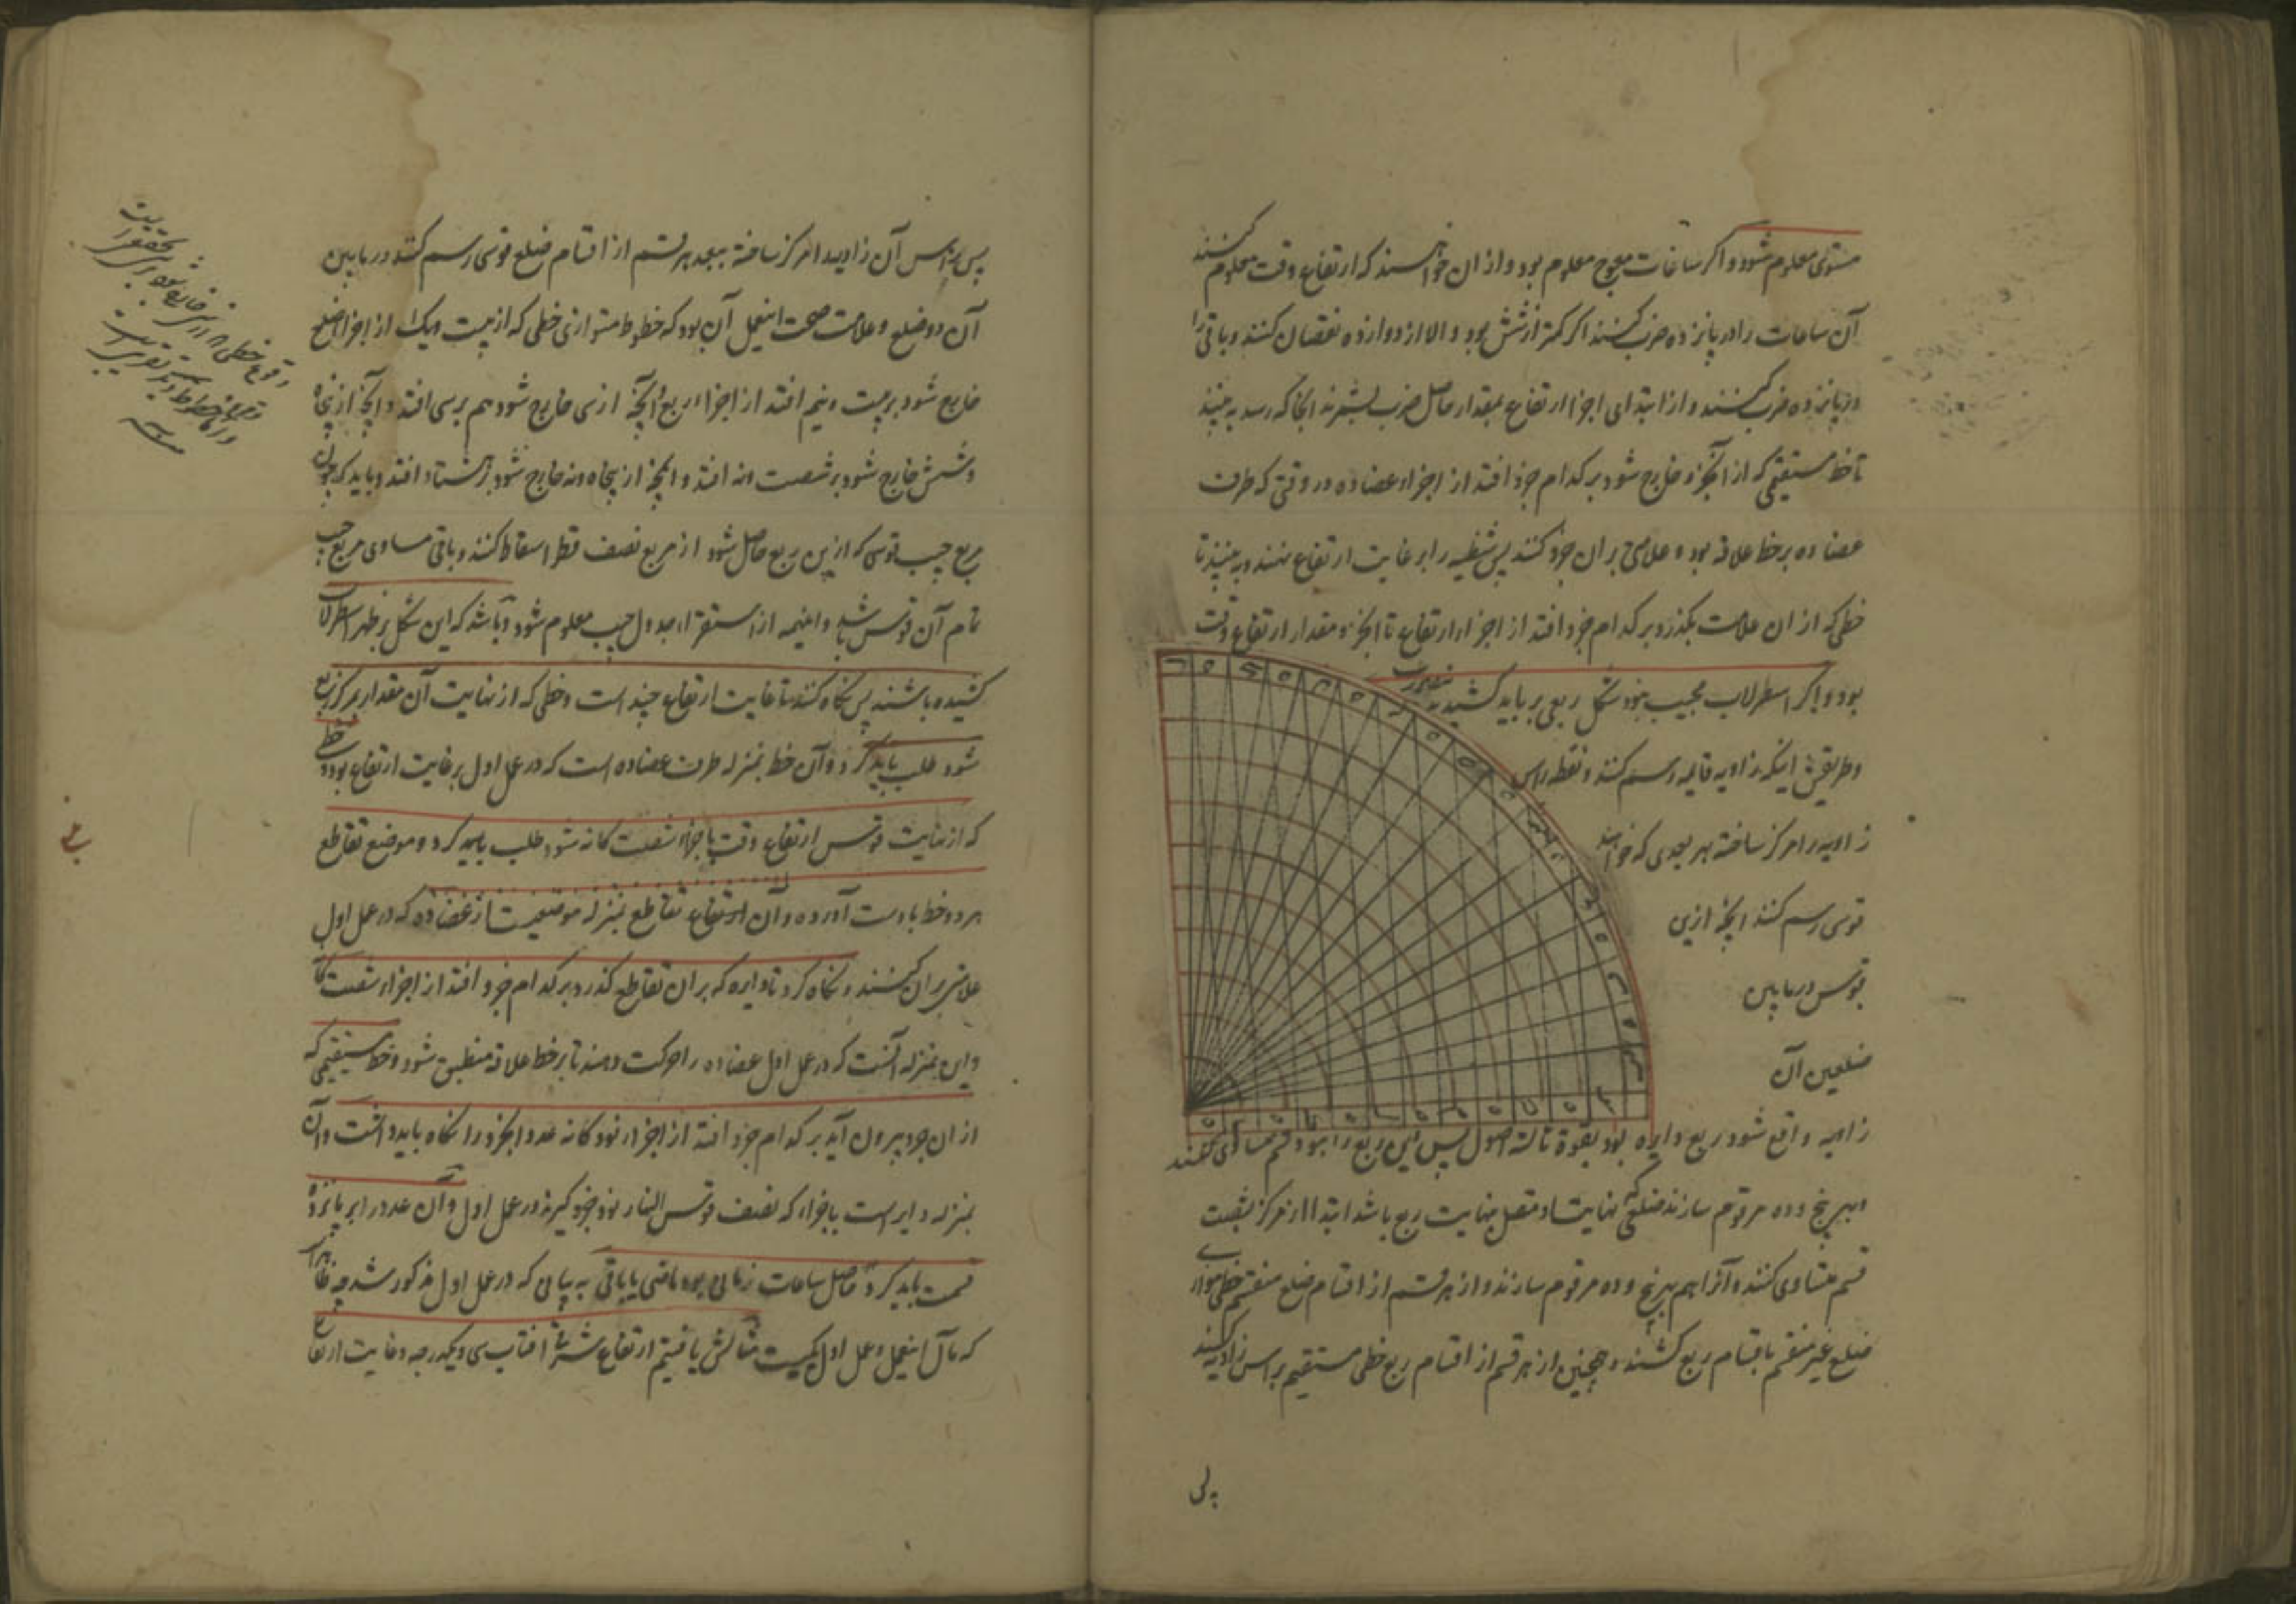 مستوی معلوم شود و اگر ساعات معوج معلوم بود و از ان خواهند که ارتفاع وقت معلوم کنند
آن ساعات را در پانزده ضرب کنند اگر کمتر از شش بود و الا از دوازده نقصان کنند و باقی را
در پانزده ضرب کنند و از ابتدای اجزا ارتفاع بمقدار حاصل ضرب بشمرند انجا که رسد به بینند
تا خط مستقیمی که از آنجزو خارج شود بر کدام جزو افتد از اجزاء عضاده در وقتی که طرف
عضاده بر خط علاقه بود و علامتی بران جزو کنند پس شظیه را بر غایت ارتفاع نهند و به بینند تا
خطی که از ان علامت بگذرد بر کدام جزو افتد از اجزاء ارتفاع تا انجزو مقدار ارتفاع وقت
بود و اگر اسطرلاب مجیب نبود شکل ربعی بر باید کشید
و طریقش اینکه زاویه قایمه رسم کنند و نقطه راس
زاویه را مرکز ساخته بهر بعدی که خواهند
قوسی رسم کنند انچه ازین
قوس در مابین
ضلعین آن
زاویه واقع شود ربع دایره بود بقوة ثالثه اصول پس این ربع را بنود قسم مساوی کنند
و بپنج و ده مرقوم سازند ضلعی که نهایت او متصل بنهایت ربع باشد ابتدا از مرکز بشصت
قسم متساوی کنند و آنرا هم بپنج و ده مرقوم سازند و از هر قسم از اقسام ضلع منقسم خطی موازی
ضلع غیر منقسم باقسام ربع کشند و همچنین از هر قسم از اقسام ربع خطی مستقیم براس زاویه کشند
پس راس آن زاویه را مرکز ساخته ببعد هر قسم از اقسام ضلع قوسی رسم کنند در مابین
آن دو ضلع و علامت صحت اینعمل آن بود که خطوط متوازی خطی که از بیست و یک از اجزا ضلع
خارج شود بر بیست و نیم افتد از اجزاء ربع و آنچه از سی خارج شود هم بر سی افتد و آنچه از پنجاه
و شش خارج شود بر شصت و نه افتد و انچه از پنجاه و نه خارج شود بر هشتاد افتد و باید که چون
مربع جیب قوسی که ازین ربع حاصل شود از مربع نصف قطر اسقاط کنند و باقی مساوی مربع جیب
تمام آن قوس باشد و اینهمه از استقراء جدول جیب معلوم شود و باشد که این شکل بر ظهر اسطرلاب
کشیده باشند پس نگاه کنند تا غایت ارتفاع چند است و خطی که از نهایت آن مقدار بمرکز ربع
شود طلب باید کرد و آن خط بمنزله طرف عضاده است که در عمل اول بر غایت ارتفاع بود و خط
که از نهایت قوس ارتفاع وقت باجزاء شصت گانه شود طلب باید کرد و موضع تقاطع
هر دو خط با دست آورده و آن تقاطع بمنزله موضعیست از عضاده که در عمل اول
علامتی بران کنند و نگاه کرد تا دایره که بران تقاطع گذرد بر کدام جزو افتد از اجزاء شصت گانه
و این بمنزله آنست که در عمل اول عضاده را حرکت دهند تا بر خط علاقه منطبق شود و خط مستقیمی که
از ان جزو بیرون آید بر کدام جزو افتد از اجزاء نود گانه عدد انجزو را نگاه باید داشت و آن
بمنزله دایر است باجزاء که نصف قوس النهار نود جزو گیرند در عمل اول و آن عدد را بر پانزده
قسمت باید کرد تا حاصل ساعات زمانی بود ماضی یا باقی به بیانی که در عمل اول مذکور شد چه ظاهر است
که مآل اینعمل و عمل اول یکیست مثالش یافتیم ارتفاع شرقی آفتاب سی و یکدرجه و غایت ارتفاع